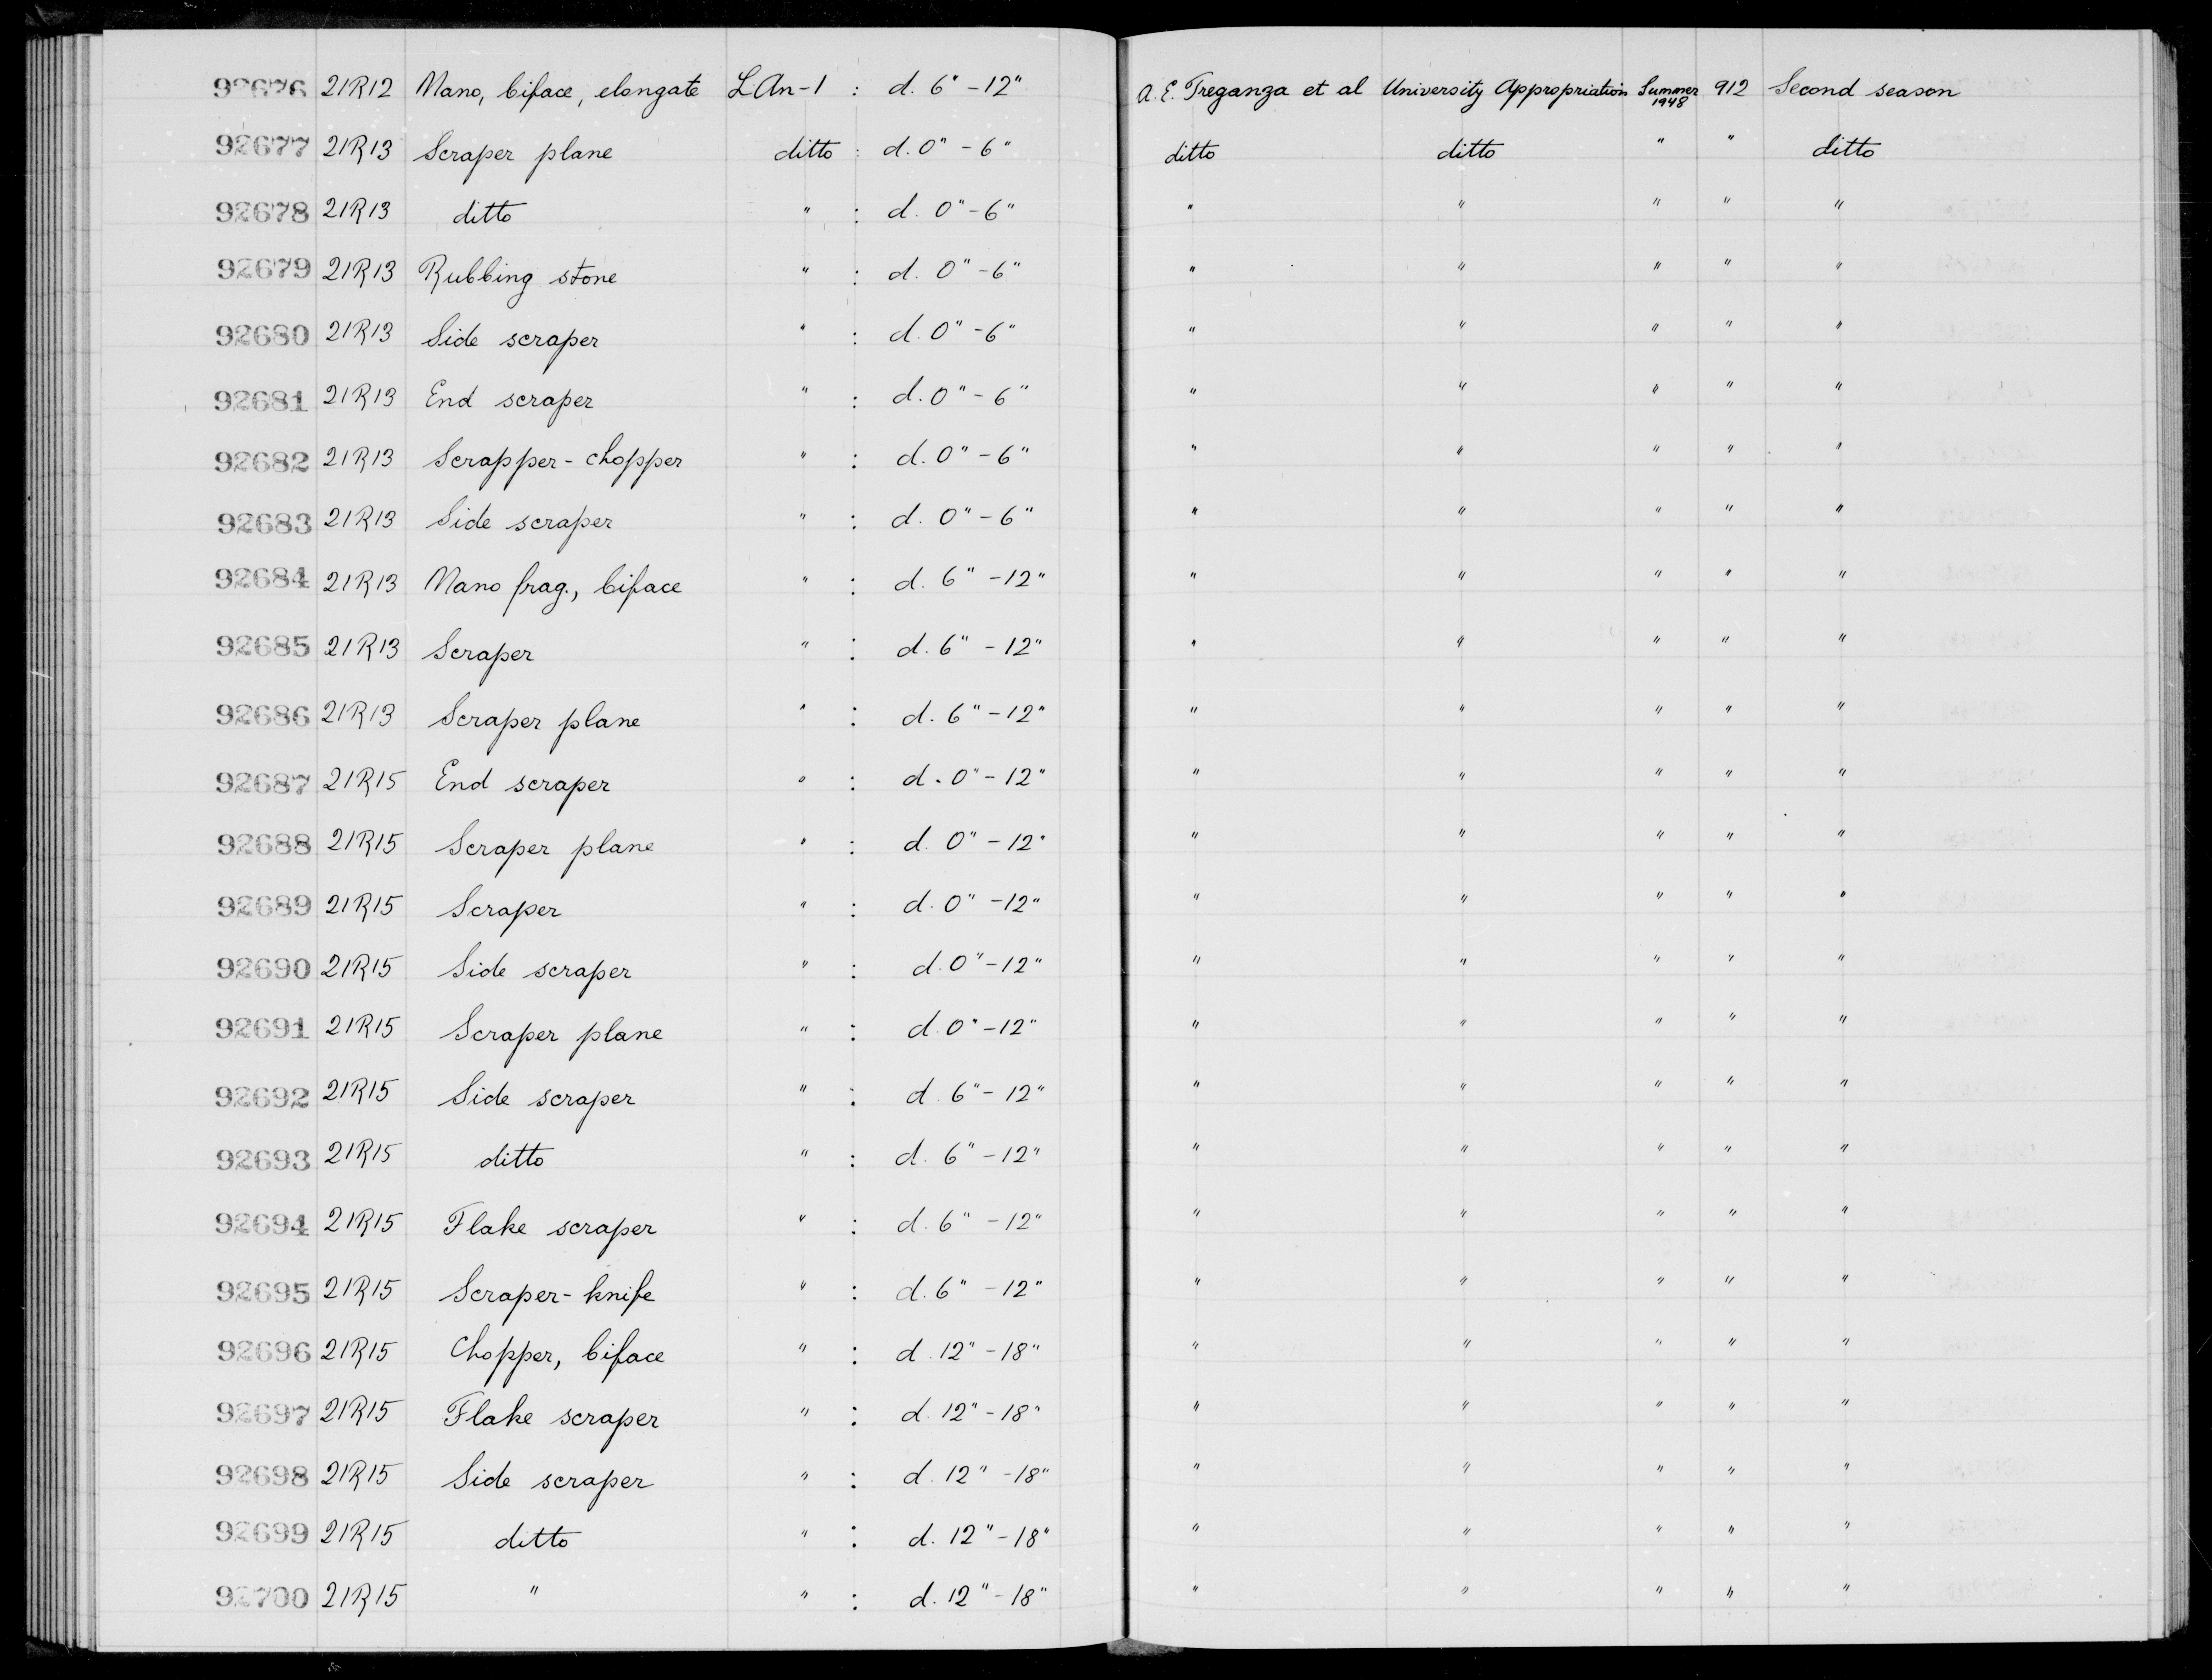 92676 21R12 Mano, biface, elongate L.An-1 : d. 6" -12" A. E. Treganza et al University Appropriation Summer 1948 912 Second season
92677 21R13 Scraper plane ditto : d. 0" - 6" ditto ditto " " ditto
92678 21R13 ditto " : d. 0" - 6" " " " " "
92679 21R13 Rubbing stone " : d. 0" - 6" " " " " "
92680 21R13 Side scraper " : d. 0" - 6" " " " " "
92681 21R13 End scraper " : d. 0" - 6" " " " " "
92682 21R13 Scrapper - chopper " : d. 0" - 6" " " " " "
92683 21R13 Side scraper " : d. 0" - 6" " " " " "
92684 21R13 Mano frag., biface " : d. 6" -12" " " " " "
92685 21R13 Scraper " : d. 6" -12" " " " " "
92686 21R13 Scraper plane " : d. 6" -12" " " " " "
92687 21R15 End scraper " : d. 0" -12" " " " " "
92688 21R15 Scraper plane " : d. 0" -12" " " " " "
92689 21R15 Scraper " : d. 0" -12" " " " " "
92690 21R15 Side scraper " : d. 0" -12" " " " " "
92691 21R15 Scraper plane " : d. 0" -12" " " " " "
92692 21R15 Side scraper " : d. 6" -12" " " " " "
92693 21R15 ditto " : d. 6" -12" " " " " "
92694 21R15 Flake scraper " : d. 6" -12" " " " " "
92695 21R15 Scraper - knife " : d. 6" -12" " " " " "
92696 21R15 Chopper, biface " : d. 12" -18" " " " " "
92697 21R15 Flake scraper " : d. 12" -18" " " " " "
92698 21R15 Side scraper " : d. 12" -18" " " " " "
92699 21R15 ditto " : d. 12" -18" " " " " "
92700 21R15 " " : d. 12" -18" " " " " "